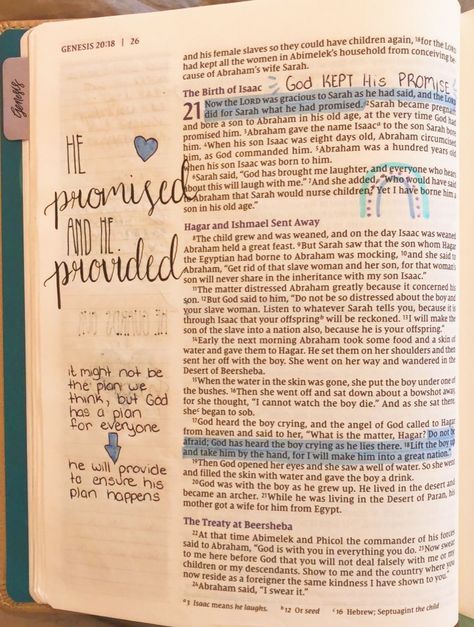 GENESIS 20:18 | 26
Genesis
and his female slaves so they could have children again, ¹⁸for the LORD
had kept all the women in Abimelek's household from conceiving
cause of Abraham's wife Sarah.
The Birth of Isaac
GOD KEPT HIS PROMISE
21 Now the LORD was gracious to Sarah as he had said, and the LORD
did for Sarah what he had promised. ²Sarah became pregnant
and bore a son to Abraham in his old age, at the very time God had
promised him. ³Abraham gave the name Isaac to the son Sarah bore
him. ⁴When his son Isaac was eight days old, Abraham circumcised
him, as God commanded him. ⁵Abraham was a hundred years old
when his son Isaac was born to him.
⁶Sarah said, "God has brought me laughter, and everyone who hears
about this will laugh with me." ⁷And she added, "Who would have said
to Abraham that Sarah would nurse children? Yet I have borne him a
son in his old age."
Hagar and Ishmael Sent Away
⁸The child grew and was weaned, and on the day Isaac was weaned
Abraham held a great feast. ⁹But Sarah saw that the son whom Hagar
the Egyptian had borne to Abraham was mocking, ¹⁰and she said to
Abraham, "Get rid of that slave woman and her son, for that woman's
son will never share in the inheritance with my son Isaac."
¹¹The matter distressed Abraham greatly because it concerned his
son. ¹²But God said to him, "Do not be so distressed about the boy and
your slave woman. Listen to whatever Sarah tells you, because it is
through Isaac that your offspring ᵇ will be reckoned. ¹³I will make the
son of the slave into a nation also, because he is your offspring."
¹⁴Early the next morning Abraham took some food and a skin of
water and gave them to Hagar. He set them on her shoulders and then
sent her off with the boy. She went on her way and wandered in the
Desert of Beersheba.
¹⁵When the water in the skin was gone, she put the boy under one of
the bushes. ¹⁶Then she went off and sat down about a bowshot away,
for she thought, "I cannot watch the boy die." And as she sat there,
she ᶜ began to sob.
¹⁷God heard the boy crying, and the angel of God called to Hagar
from heaven and said to her, "What is the matter, Hagar? Do not be
afraid; God has heard the boy crying as he lies there. ¹⁸Lift the boy up
and take him by the hand, for I will make him into a great nation."
¹⁹Then God opened her eyes and she saw a well of water. So she went
and filled the skin with water and gave the boy a drink.
²⁰God was with the boy as he grew up. He lived in the desert and
became an archer. ²¹While he was living in the Desert of Paran, his
mother got a wife for him from Egypt.
The Treaty at Beersheba
²²At that time Abimelek and Phicol the commander of his forces
said to Abraham, "God is with you in everything you do. ²³Now swear
to me here before God that you will not deal falsely with me or my
children or my descendants. Show to me and the country where you
now reside as a foreigner the same kindness I have shown to you."
²⁴Abraham said, "I swear it."
ᵃ3 Isaac means he laughs. ᵇ12 Or seed ᶜ16 Hebrew; Septuagint the child
HE
promised
AND HE
provided
it might not be
the plan we
think, but God
has a plan
for everyone
he will provide
to ensure his
plan happens